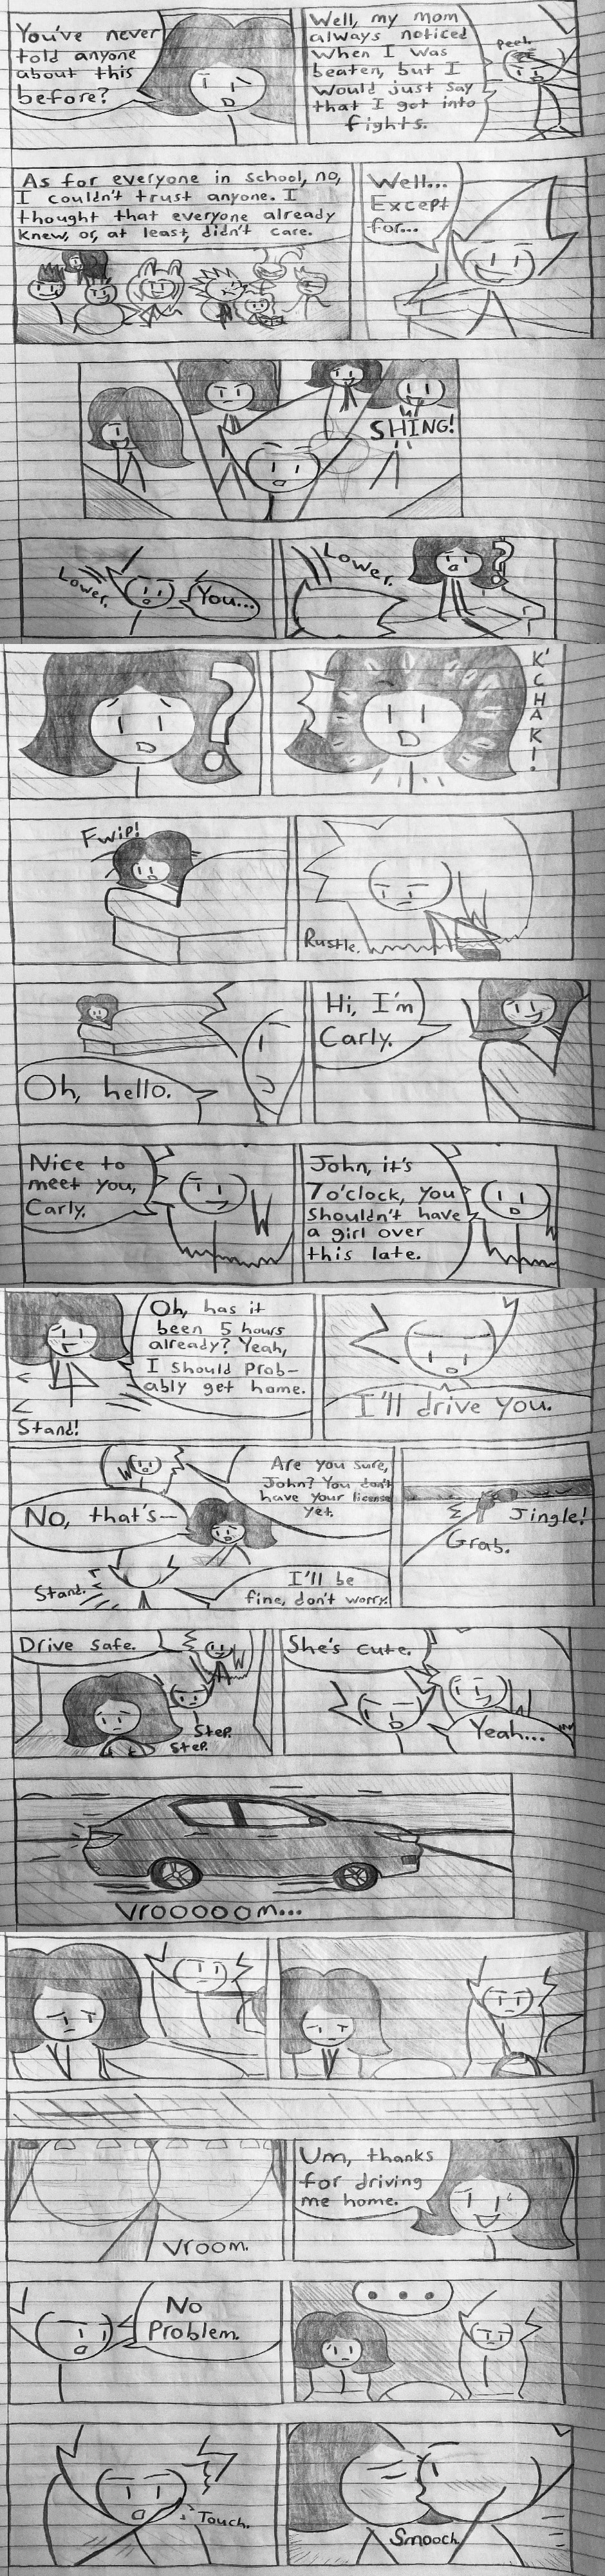 You've never
told anyone
about this
before?
Well, my mom
always noticed
when I was
beaten, but I
would just say
that I got into
fights.
Peek.
As for everyone in school, no,
I couldn't trust anyone. I
thought that everyone already
knew, or, at least, didn't care.
Well...
Except
for...
SHING!
Lower.
You...
Lower.
?
?
K'CHAK!
Fwip!
Rustle.
Oh, hello.
Hi, I'm
Carly.
Nice to
meet you,
Carly.
John, it's
7 o'clock, you
shouldn't have
a girl over
this late.
Oh, has it
been 5 hours
already? Yeah,
I should prob-
ably get home.
Stand!
I'll drive you.
Are you sure,
John? You don't
have your license
yet.
No, that's—
Stand.
I'll be
fine, don't worry.
Jingle!
Grab.
Drive safe.
Step.
Step.
She's cute.
Yeah...
Vrooooom...
Vroom.
Um, thanks
for driving
me home.
No
Problem.
...
Touch.
Smooch.